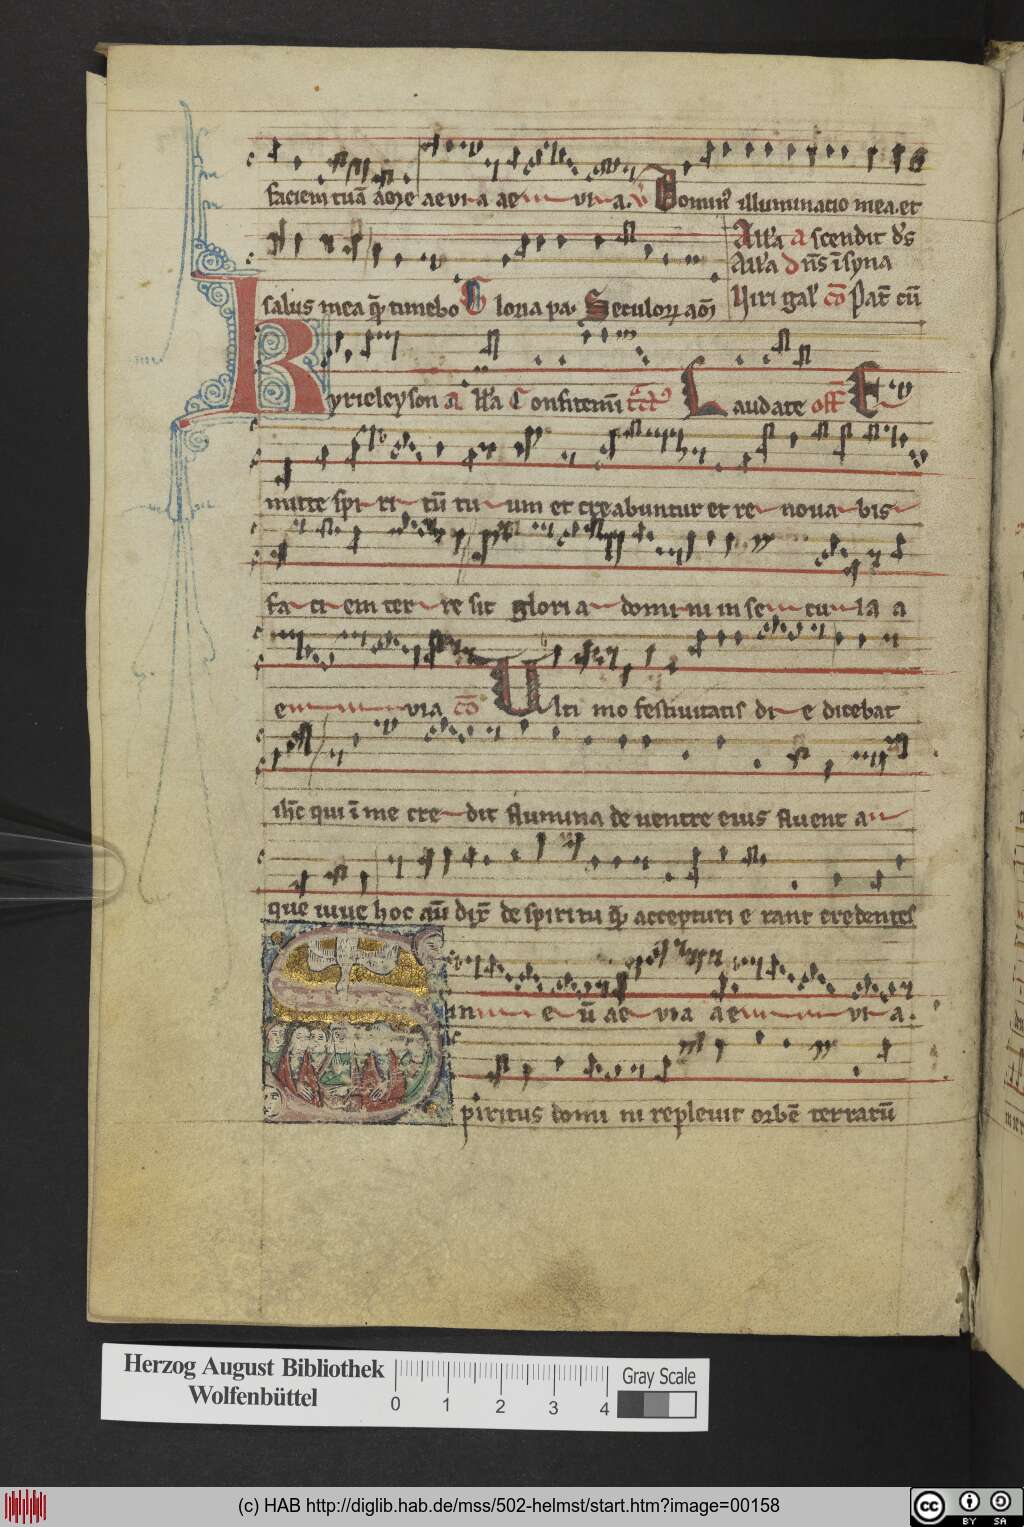 faciem tuā dn̄e ae vi a ae vi a. V Domin⁹ illuminatio mea. et
All'a Ascendit d's
All'a dn̄s ī syna
salus mea q̄ timebo Gloria pa. Seculoꝝ am̄
Viri gal' cō Pat̄ cū
Kyrieleyson All'a Confitemī Laudate off̄ E
mitte spi ri tū tu um et creabuntur et re nova bis
fa ci em ter re sit glori a domi ni in se cu la a
e via cō Ulti mo festivitatis di e dicebat
ih̄c qui ī me cre dit flumina de ventre eius fluent a
que vive hoc aū dix̄ de spiritu q̄ accepturi e rant credentes
in e ū ae via ae vi a.
Spiritus domi ni replevit orbē terrarū
Herzog August Bibliothek
Wolfenbüttel
0 1 2 3 4
Gray Scale
(c) HAB http://diglib.hab.de/mss/502-helmst/start.htm?image=00158
cc BY SA